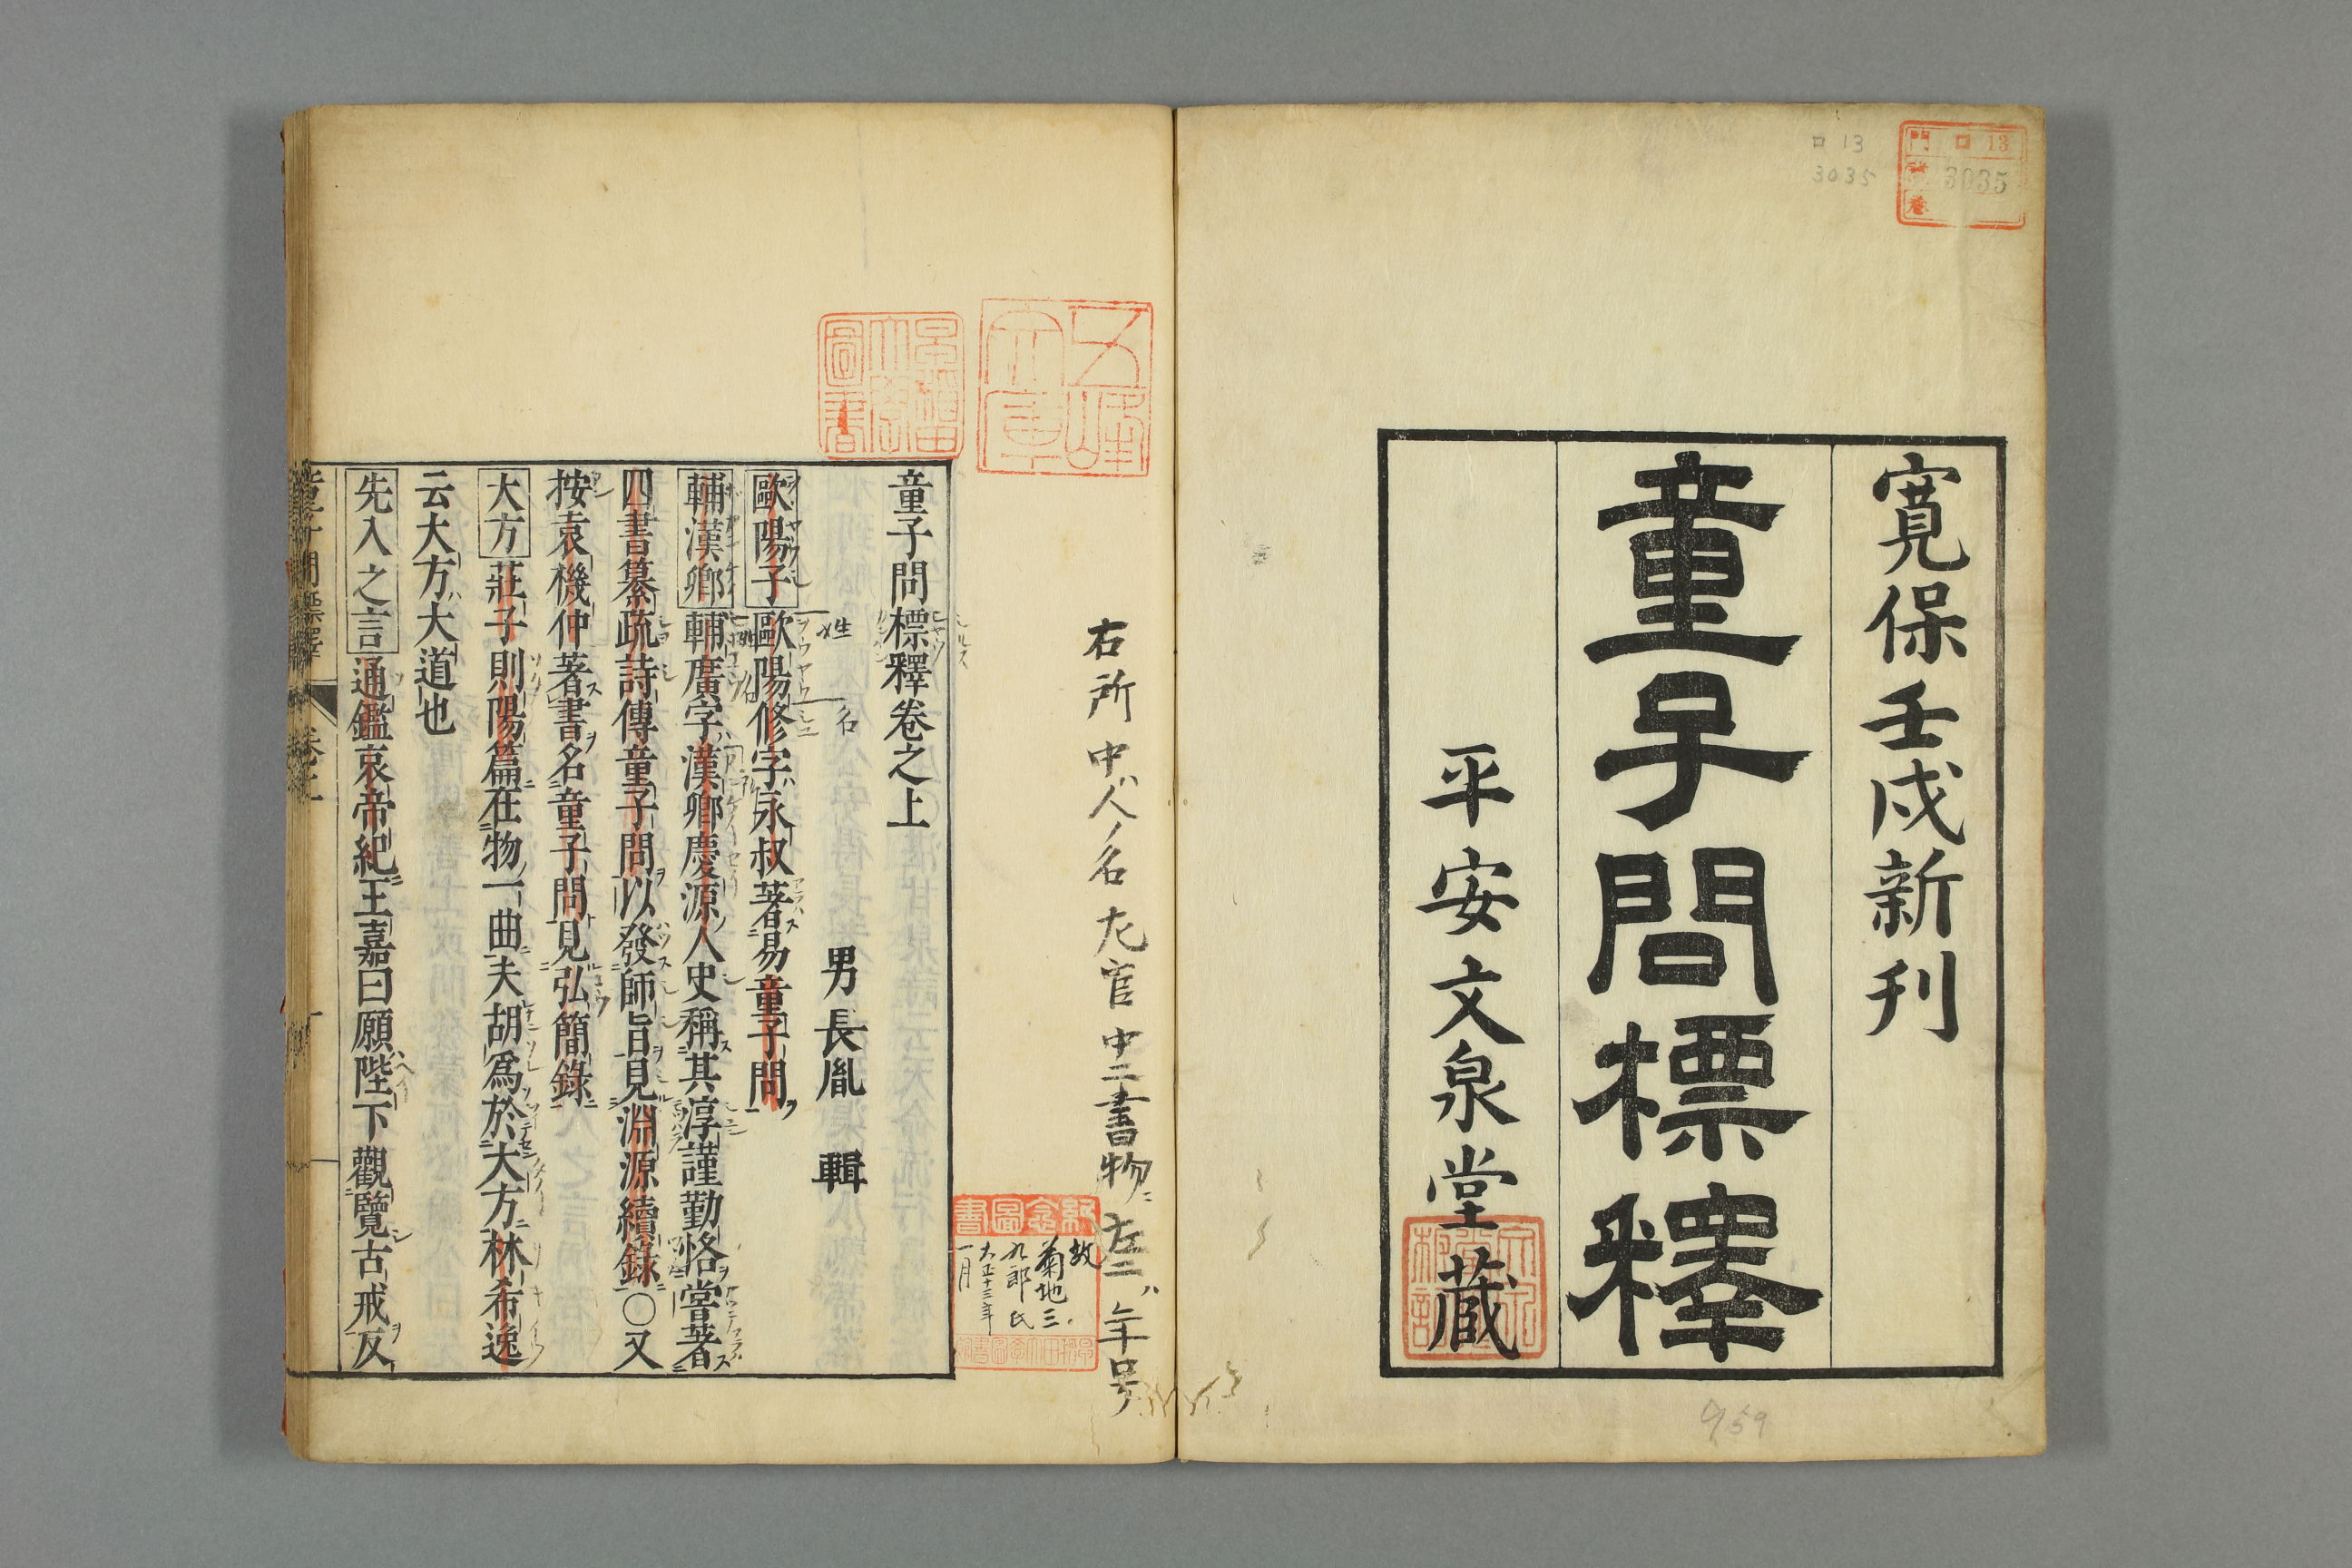 寛保壬戌新刊
童子問標釋
平安文泉堂藏
門 ロ 13
號 3035
卷
ロ 13
3035
右所中ハ人ノ名左官中二書物ニ左二ハ年号
五峰
故
菊地三
九郎氏
大正十三年
一月
童子問標釋卷之上
男長胤 輯
歐陽子 歐陽修字永叔著易童子問
輔漢卿 輔廣字漢卿慶源人史稱其淳謹勤恪嘗著
四書纂疏詩傳童子問以發師旨見淵源續錄○又
按袁機仲著書名童子問見弘簡錄
大方 莊子則陽篇在物一曲夫胡爲於大方林希逸
云大方大道也
先入之言 通鑑哀帝紀王嘉曰願陛下觀覽古戒反
姓
名
童子問標釋 卷之上